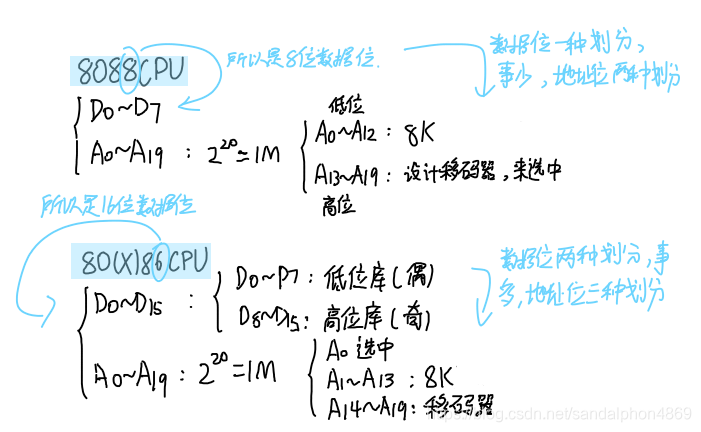 8088CPU
所以是8位数据位.
数据位一种划分,
事少,地址位两种划分
D0~D7
A0~A19 : 2^20=1M
低位
A0~A12 : 8K
A13~A19 : 设计移码器,来选中
高位
所以是16位数据位
80(X)86CPU
数据位两种划分,事
多,地址位三种划分
D0~D15 :
D0~D7 : 低位库(偶)
D8~D15 : 高位库(奇)
A0~A19 : 2^20=1M
A0 选中
A1~A13 : 8K
A14~A19 : 移码器
https://blog.csdn.net/sandalphon4869